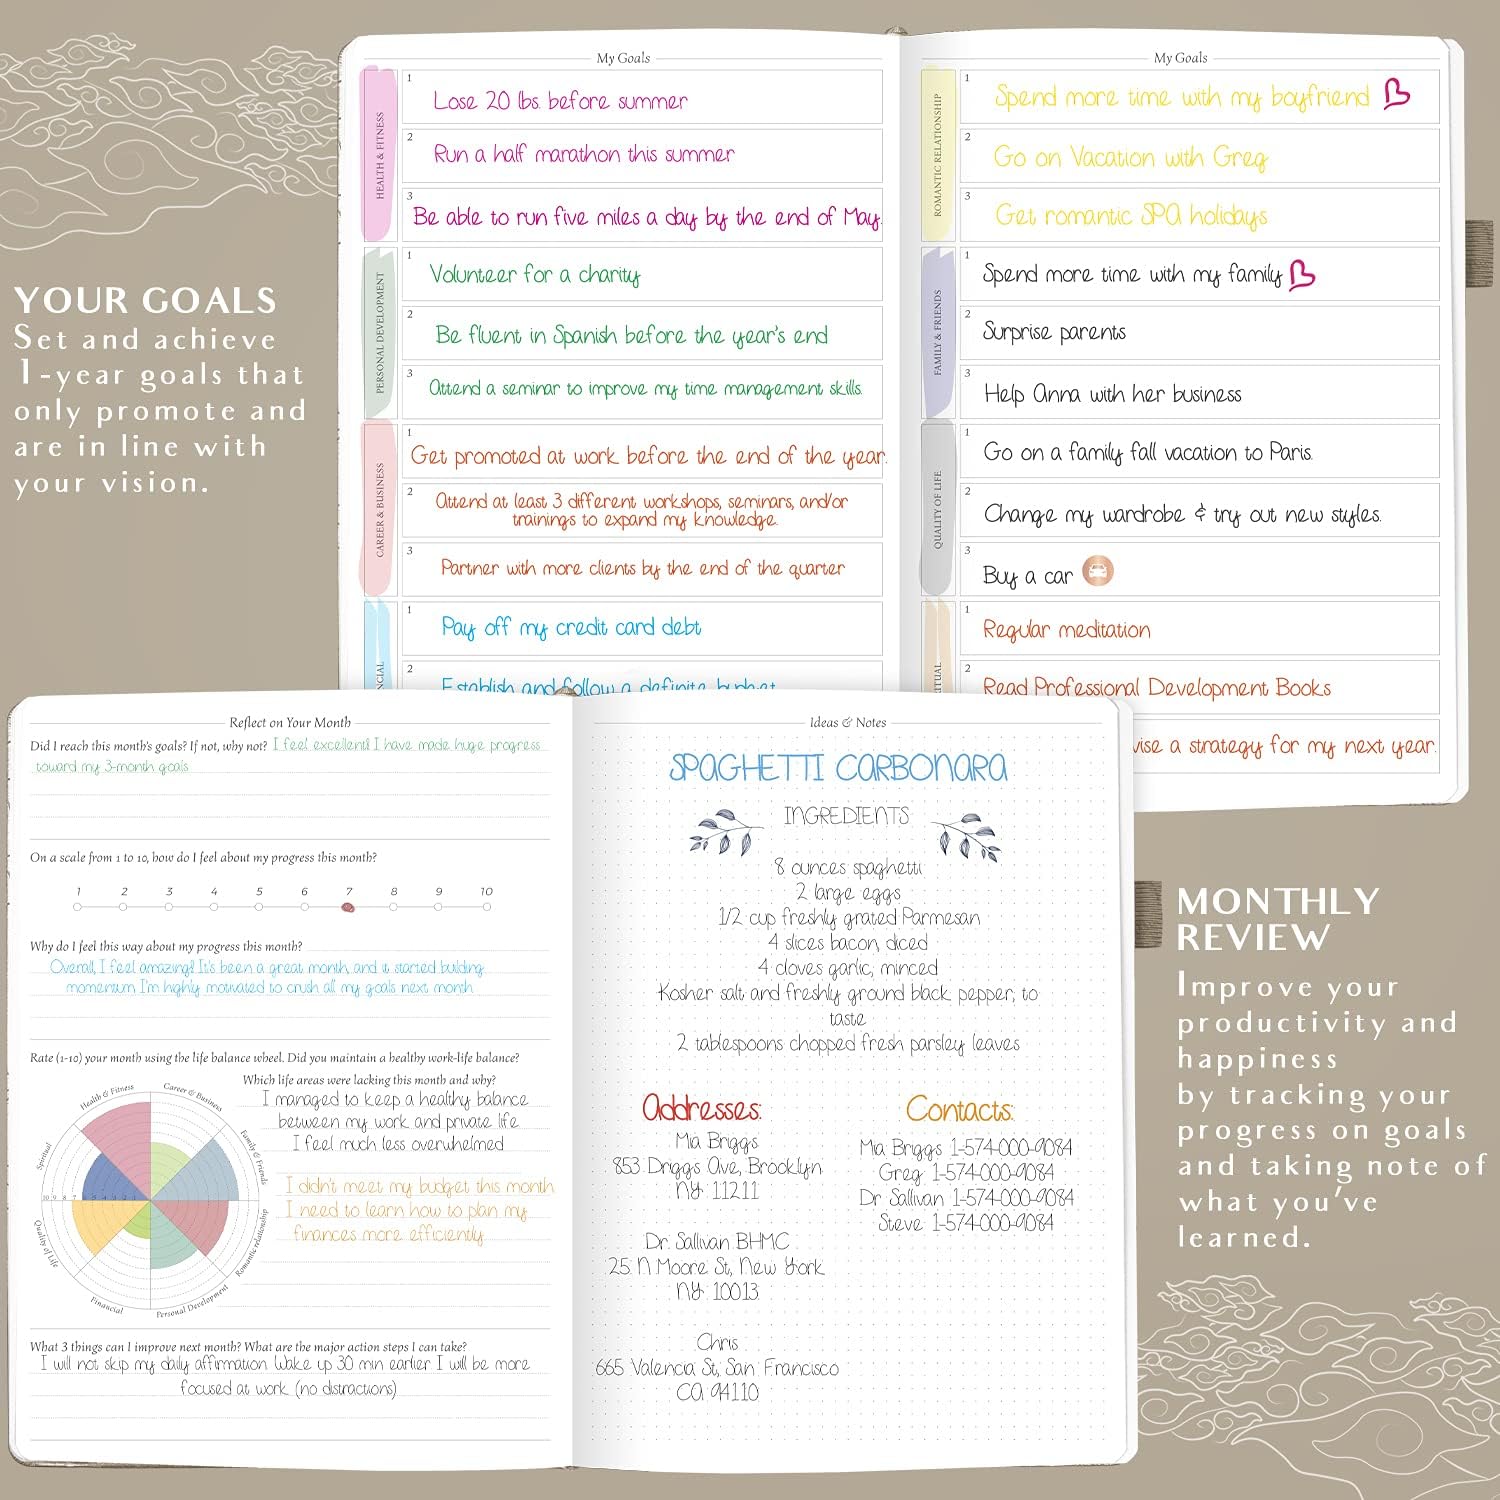 YOUR GOALS
Set and achieve
1-year goals that
only promote and
are in line with
your vision.
My Goals
HEALTH & FITNESS
1
Lose 20 lbs. before summer
2
Run a half marathon this summer
3
Be able to run five miles a day by the end of May.
PERSONAL DEVELOPMENT
1
Volunteer for a charity
2
Be fluent in Spanish before the year's end
3
Attend a seminar to improve my time management skills.
CAREER & BUSINESS
1
Get promoted at work before the end of the year.
2
Attend at least 3 different workshops, seminars, and/or
trainings to expand my knowledge.
3
Partner with more clients by the end of the quarter
NCIAL
1
Pay off my credit card debt
2
Establish and follow a definite budget
My Goals
ROMANTIC RELATIONSHIP
1
Spend more time with my boyfriend
2
Go on Vacation with Greg
3
Get romantic SPA holidays
FAMILY & FRIENDS
1
Spend more time with my family
2
Surprise parents
3
Help Anna with her business
QUALITY OF LIFE
1
Go on a family fall vacation to Paris.
2
Change my wardrobe & try out new styles.
3
Buy a car
RITUAL
1
Regular meditation
2
Read Professional Development Books
vise a strategy for my next year.
Reflect on Your Month
Did I reach this month's goals? If not, why not? I feel excellent! I have made huge progress
toward my 3-month goals
On a scale from 1 to 10, how do I feel about my progress this month?
1 2 3 4 5 6 7 8 9 10
Why do I feel this way about my progress this month?
Overall, I feel amazing! It's been a great month, and it started building
momentum. I'm highly motivated to crush all my goals next month
Rate (1-10) your month using the life balance wheel. Did you maintain a healthy work-life balance?
Health & Fitness
Career & Business
Family & Friends
Romantic relationship
Personal Development
Financial
Quality of Life
Spiritual
10 9 8 7 6 5 4 3 2 1
Which life areas were lacking this month and why?
I managed to keep a healthy balance
between my work and private life
I feel much less overwhelmed
I didn't meet my budget this month
I need to learn how to plan my
finances more efficiently
What 3 things can I improve next month? What are the major action steps I can take?
I will not skip my daily affirmation. Wake up 30 min earlier I will be more
focused at work (no distractions)
Ideas & Notes
SPAGHETTI CARBONARA
INGREDIENTS
8 ounces spaghetti
2 large eggs
1/2 cup freshly grated Parmesan
4 slices bacon, diced
4 cloves garlic, minced
Kosher salt and freshly ground black pepper, to
taste
2 tablespoons chopped fresh parsley leaves
Addresses:
Mia Briggs
853 Driggs Ave, Brooklyn
NY 11211
Dr. Sallivan BHMC
25 N Moore St, New York
NY 10013
Chris
665 Valencia St, San Francisco
CA 94110
Contacts:
Mia Briggs 1-574-000-9084
Greg 1-574-000-9084
Dr Sallivan 1-574-000-9084
Steve 1-574-000-9084
MONTHLY
REVIEW
Improve your
productivity and
happiness
by tracking your
progress on goals
and taking note of
what you've
learned.